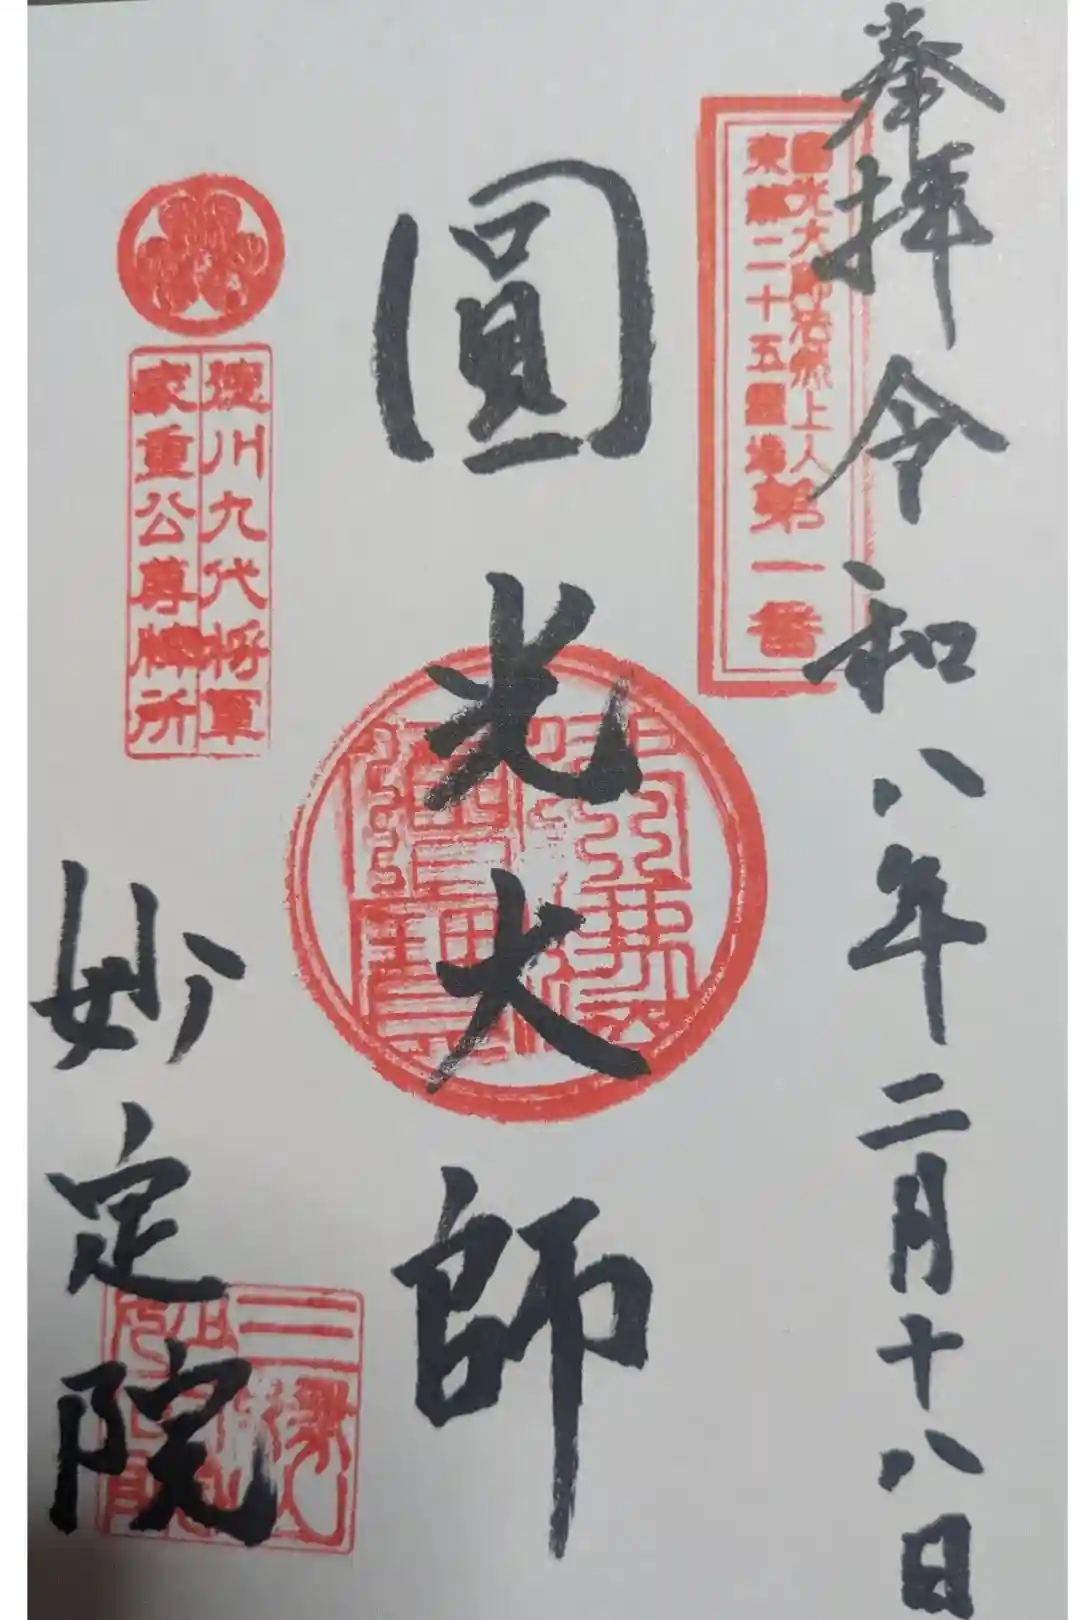 奉拝 令和八年二月十八日
圓光大師法然上人
東都二十五霊場第一番
圓光大師
徳川九代将軍
家重公尊牌所
妙定院